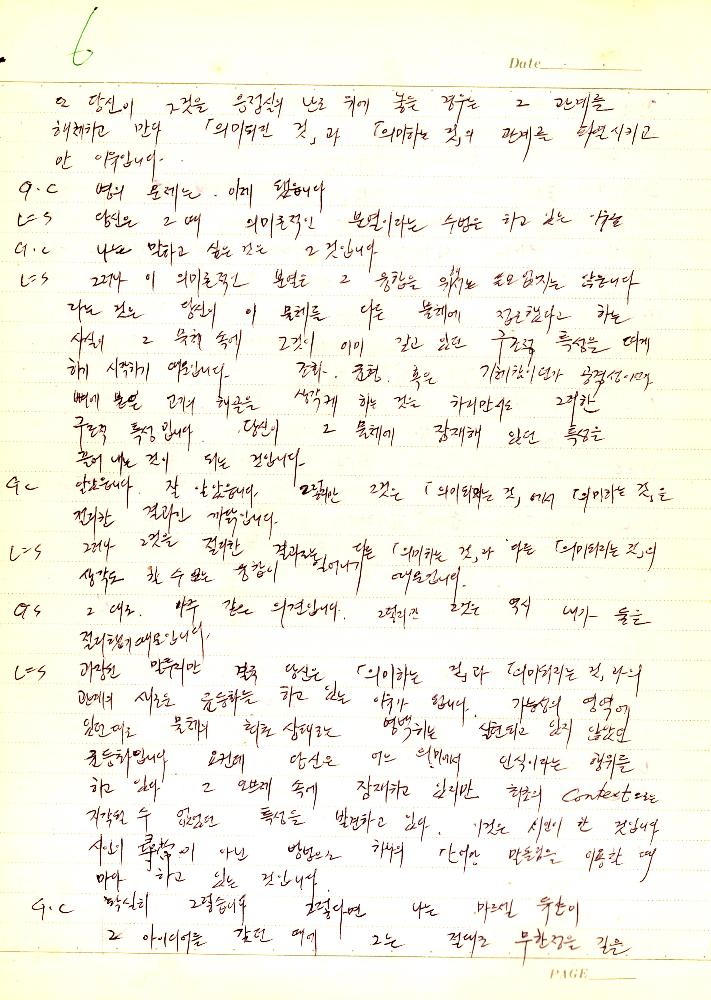 6
Date
오 당신이 그것을 응접실의 난로 위에 놓는 경우는 그 관계를
해체하고 만다 「의미되진 것」과 「의미하는 것」의 관계를 파열시키고
만 이유입니다.
G.C 병의 문제는. 이제 됐습니다
L=S 당신은 그 때 의미론적인 분열이라는 수법은 하고 있는
G.C 나도 말하고 싶은 것은 그것입니다
L=S 그러나 이 의미론적인 분열은 그 융합을 위해서는 쓸모 없지는 않습니다
라는 것은 당신이 이 물체를 다른 물체에 접근했다고 하는
사실이 그 물체 속에 그것이 이미 갖고 있던 구조적 특성을 띠게
하기 시작하기 때문입니다. 조화. 균형. 혹은 기괴함이던가 공격성이며
뼈에 붙은 고기의 해골을 생각케 하는 것은 하리만서도 그러한
구조적 특성입니다. 당신이 그 물체에 잠재해 있던 특성을
끌어 내는 것이 되는 것입니다.
G.C 알았습니다. 잘 알았습니다. 그렇지만 그것은 「의미되는 것」에서 「의미하는 것」을
절리한 결과인 까닭입니다.
L=S 그러나 그것을 절리한 결과로는 다른 「의미하는 것」과 다른 「의미되는 것」의
생각도 할 수 없는 융합이 일어나기 때문입니다.
G.S 그 대로. 아주 같은 의견입니다. 그렇지만 그것은 역시 내가 둘을
절리했기 때문입니다.
L=S 과장된 말투지만 결국 당신은 「의미하는 것」과 「의미되는 것」과의
관계의 새로운 균등화를 하고 있는 이유가 됩니다. 가능성의 영역에
있던대로 물체의 최초 상태로는 명백히는 실현되고 있지 않았던
균등화입니다 요컨데 당신은 어느 의미에서 인식이라는 행위를
하고 있다 그 오브제 속에 잠재하고 있지만 최초의 Context으로는
지각될 수 없었던 특성을 발견하고 있다. 이것은 시인이 한 것입니다
시인이 이 아닌 방법으로 하나의 단어와 만들림을 이용할 때
마다 하고 있는 것입니다.
G.C 확실히 그렇습니다 그렇다면 나는 마르셀 뒤샹이
그 아이디어를 갖던 때에 그는 절대로 무한정을 길을
PAGE